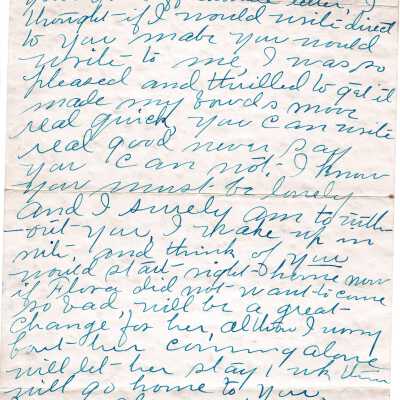 letter, I
thought if I would write direct
to you mabe you would
write to me, I was so
pleased and thrilled to get it
made my bowds move
real quick, you can write
real good never say
you can not. I know
you must be lonely
and I surely am to with
-out you, I wake up in
nite, and think of you
would start right home now
if Flora did not want to come
so bad, will be a great
change for her, altho I worry
bout her coming alone
will let her stay,
will go home to you